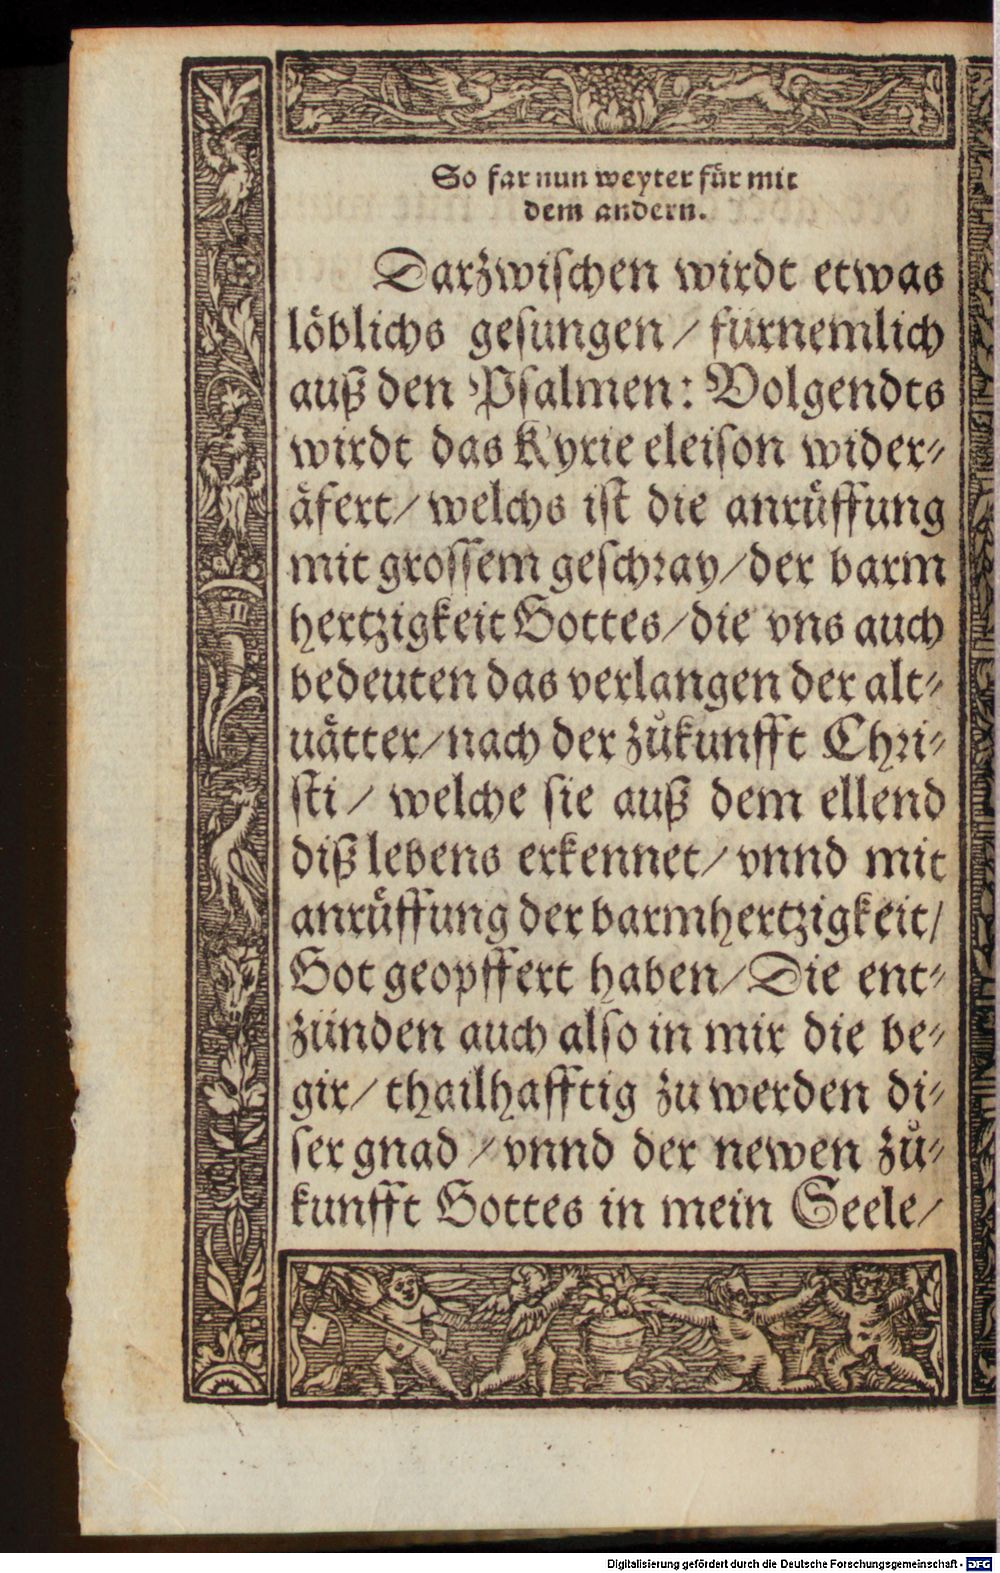 So far nun weyter für mit
dem andern.
Darzwischen wirdt etwas
löblichs gesungen / fürnemlich
auß den Psalmen: Volgendts
wirdt das Kyrie eleison wider⸗
äfert / welchs ist die anrüffung
mit grossem geschray / der barm
hertzigkeit Gottes / die vns auch
bedeuten das verlangen der alt⸗
uätter / nach der zůkunfft Chri⸗
sti / welche sie auß dem ellend
diß lebens erkennet / vnnd mit
anrüffung der barmhertzigkeit /
Got geopffert haben / Die ent⸗
zünden auch also in mir die be⸗
gir / thailhafftig zu werden di⸗
ser gnad / vnnd der newen zů⸗
kunfft Gottes in mein Seele /
Digitalisierung gefördert durch die Deutsche Forschungsgemeinschaft - DFG